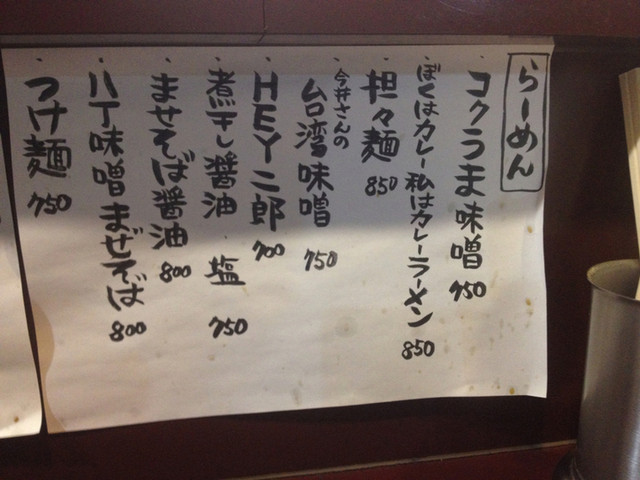 らーめん
・コクうま味噌 750
・ぼくはカレー私はカレーラーメン 850
・担々麺 850
・今井さんの台湾味噌 750
・HEY二郎 700
・煮干し醤油・塩 750
・まぜそば醤油 800
・八丁味噌まぜそば 800
・つけ麺 750